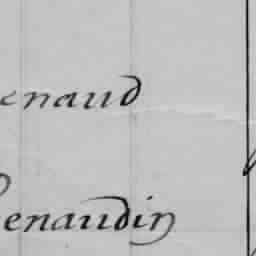 enaud
enaudin